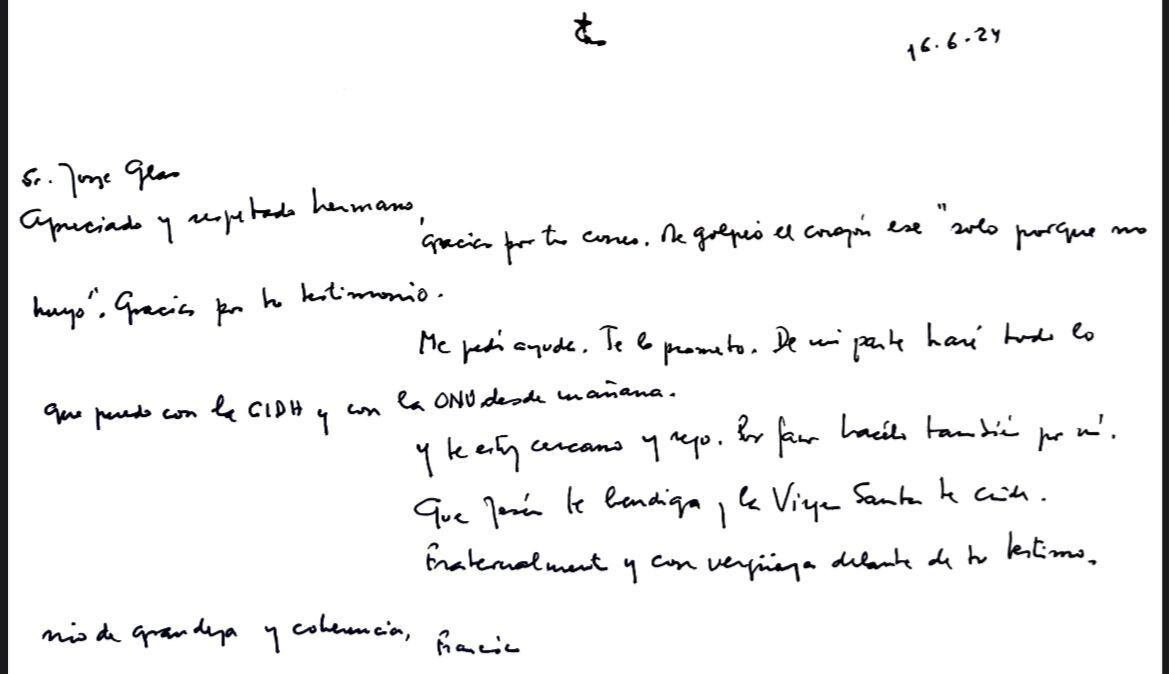 16.6.24
Sr. Jorge Glas
Apreciado y respetado hermano,
Gracias por tu correo. Me golpeó el corazón ese "solo porque no
huyo". Gracias por tu testimonio.
Me pedís ayuda. Te lo prometo. De mi parte haré todo lo
que puedo con la CIDH y con la ONU desde mañana.
y te estoy cercano y rezo. Por favor hacélo también por mí.
Que Jesús te bendiga y la Virgen Santa te cuide.
Fraternalmente y con vergüenza delante de tu testimo-
nio de grandeza y coherencia,
Francisco